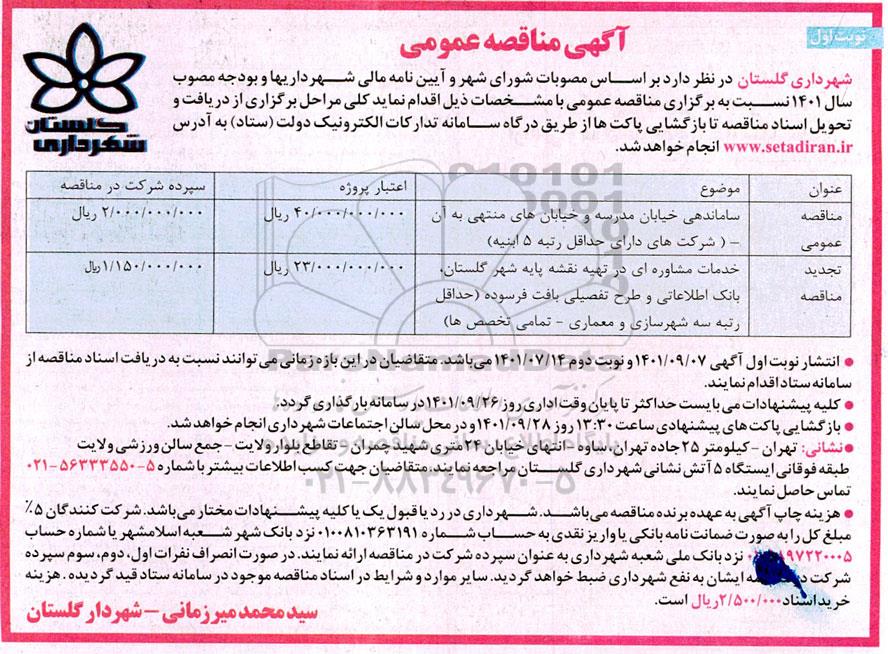 نوبت اول
آگهی مناقصه عمومی
گلستان
شهرداری
شهرداری گلستان در نظر دارد بر اساس مصوبات شورای شهر و آیین نامه مالی شهرداریها و بودجه مصوب
سال ۱۴۰۱ نسبت به برگزاری مناقصه عمومی با مشخصات ذیل اقدام نماید کلی مراحل برگزاری از دریافت و
تحویل اسناد مناقصه تا بازگشایی پاکت ها از طریق درگاه سامانه تدارکات الکترونیک دولت (ستاد) به آدرس
www.setadiran.ir انجام خواهد شد.
عنوان موضوع اعتبار پروژه سپرده شرکت در مناقصه
مناقصه ساماندهی خیابان مدرسه و خیابان های منتهی به آن ۴۰/۰۰۰/۰۰۰/۰۰۰ ریال ۲/۰۰۰/۰۰۰/۰۰۰ ریال
عمومی – ( شرکت های دارای حداقل رتبه ۵ ابنیه)
تجدید خدمات مشاوره ای در تهیه نقشه پایه شهر گلستان، ۲۳/۰۰۰/۰۰۰/۰۰۰ ریال ۱/۱۵۰/۰۰۰/۰۰۰ ریال
مناقصه بانک اطلاعاتی و طرح تفصیلی بافت فرسوده (حداقل
رتبه سه شهرسازی و معماری - تمامی تخصص ها)
● انتشار نوبت اول آگهی ۱۴۰۱/۰۹/۰۷ و نوبت دوم ۱۴۰۱/۰۷/۱۴ می باشد. متقاضیان در این بازه زمانی می توانند نسبت به دریافت اسناد مناقصه از
سامانه ستاد اقدام نمایند.
● کلیه پیشنهادات می بایست حداکثر تا پایان وقت اداری روز ۱۴۰۱/۰۹/۲۶ در سامانه بارگذاری گردد.
● بازگشایی پاکت های پیشنهادی ساعت ۱۳:۳۰ روز ۱۴۰۱/۰۹/۲۸ و در محل سالن اجتماعات شهرداری انجام خواهد شد.
● نشانی: تهران - کیلومتر ۲۵ جاده تهران، ساوه - انتهای خیابان ۲۴متری شهید چمران - تقاطع بلوار ولایت - جمع سالن ورزشی ولایت
طبقه فوقانی ایستگاه ۵ آتش نشانی شهرداری گلستان مراجعه نمایند. متقاضیان جهت کسب اطلاعات بیشتر با شماره ۵-۵۶۳۳۳۵۵۰-۰۲۱
تماس حاصل نمایند.
● هزینه چاپ آگهی به عهده برنده مناقصه می باشد. شهرداری در رد یا قبول یک یا کلیه پیشنهادات مختار می باشد. شرکت کنندگان ۵٪
مبلغ کل را به صورت ضمانت نامه بانکی یا واریز نقدی به حساب شماره ۰۱۰۰۸۱۰۳۶۳۱۹۱ نزد بانک شهر شعبه اسلامشهر یا شماره حساب
نزد بانک ملی شعبه شهرداری به عنوان سپرده شرکت در مناقصه ارائه نمایند. در صورت انصراف نفرات اول، دوم، سوم سپرده
شرکت در ایشان به نفع شهرداری ضبط خواهد گردید. سایر موارد و شرایط در اسناد مناقصه موجود در سامانه ستاد قید گردیده. هزینه
خرید اسناد ۲/۵۰۰/۰۰۰ ریال است.
سید محمد میرزمانی - شهردار گلستان
ParsNamadData
۰۲۱-۸۸۳۴۹۶۷۰-۵